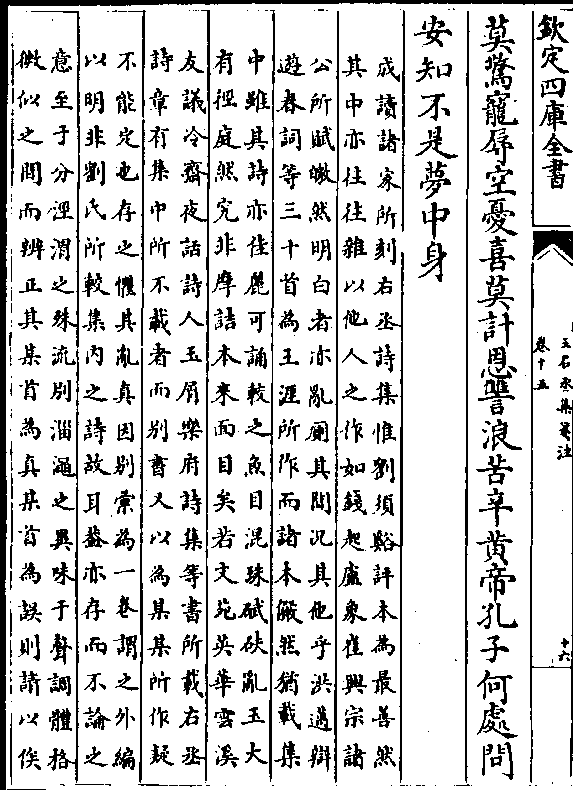 欽定四庫全書
王右丞集箋注
卷十五
十六
莫驚寵辱空憂喜莫計恩讐浪苦辛黄帝孔子何處問
安知不是夢中身
成讀諸家所刻右丞詩集惟劉須谿評本為最善然
其中亦往往雜以他人之作如錢起盧象崔興宗諸
公所賦皦然明白者亦亂厠其間况其他乎洪邁辯
遊春詞等三十首為王涯所作而諸本儼然猶載集
中雖其詩亦佳麗可誦較之魚目混珠碔砆亂玉大
有徑庭然究非摩詰本來面目矣若文苑英華雲溪
友議冷齋夜話詩人玉屑樂府詩集等書所載右丞
詩章有集中所不載者而别書又以為某某所作疑
不能定也存之懼其亂真因别彚為一卷謂之外編
以明非劉氏所較集内之詩故耳葢亦存而不論之
意至于分涇渭之殊流别淄澠之異味于聲調體格
微似之間而辨正其某首為真某首為誤則請以俟